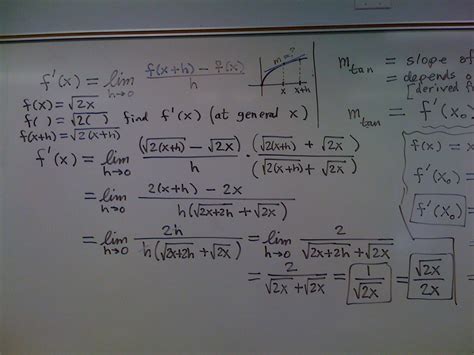 f'(x) = lim h→0 (f(x+h) − f(x))/h
m = ?
x x+h
f(x) = √2x
f( ) = √2( ) find f'(x) (at general x)
f(x+h) = √2(x+h)
f'(x) = lim h→0 (√2(x+h) − √2x)/h · (√2(x+h) + √2x)/(√2(x+h) + √2x)
= lim h→0 (2(x+h) − 2x)/(h(√2x+2h + √2x))
= lim h→0 2h/(h(√2x+2h + √2x)) = lim h→0 2/(√2x+2h + √2x)
= 2/(√2x + √2x) = 1/√2x = √2x/2x
m tan = slope of
= depends o
[derived f
m tan = f'(x₀
f(x) =
f'(x₀) =
f'(x₀) =